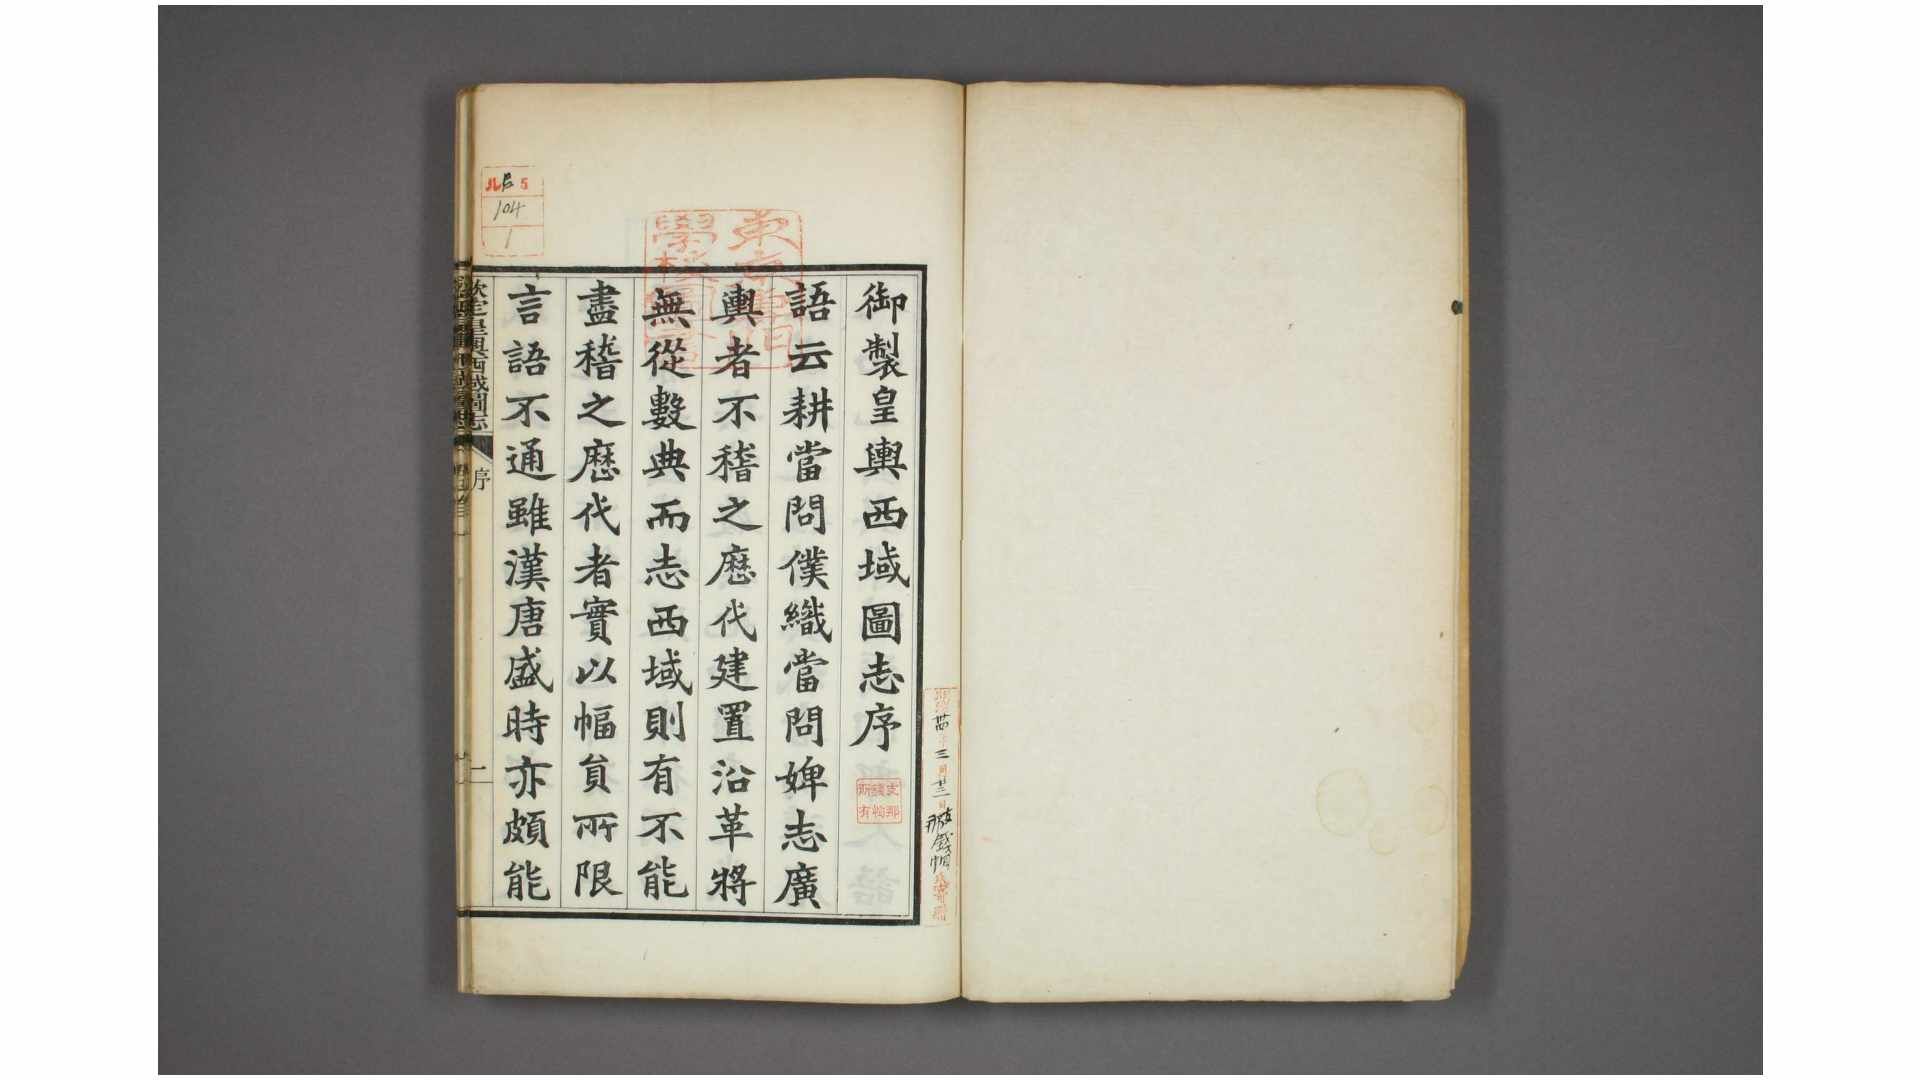 御製皇輿西域圖志序
語云耕當問僕織當問婢志廣
輿者不稽之歷代建置沿革將
無從數典而志西域則有不能
盡稽之歷代者實以幅員所限
言語不通雖漢唐盛時亦頗能
欽定皇輿西域圖志
序
一
東京專門
學校圖書
5
104
1
三
廿三
寄贈